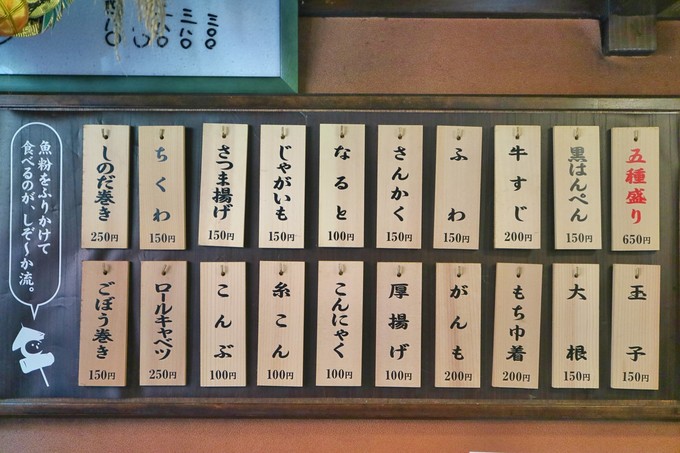 五種盛り 650円
黒はんぺん 150円
牛すじ 200円
ふわ 150円
さんかく 150円
なると 100円
じゃがいも 150円
さつま揚げ 150円
ちくわ 150円
しのだ巻き 250円
玉子 150円
大根 150円
もち巾着 200円
がんも 200円
厚揚げ 100円
こんにゃく 100円
糸こん 100円
こんぶ 100円
ロールキャベツ 250円
ごぼう巻き 150円
魚粉をふりかけて
食べるのが、しぞ〜か流。